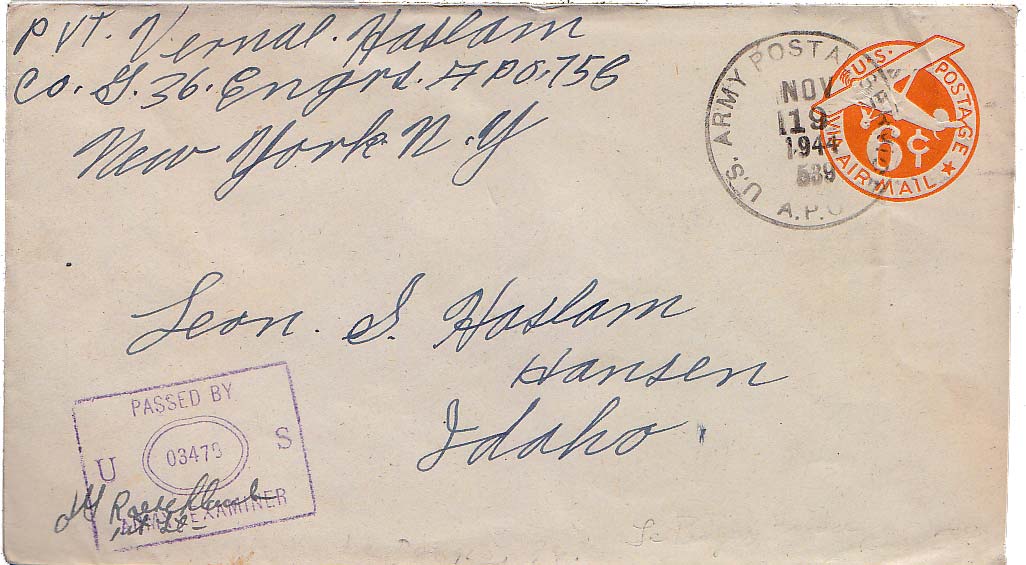 Pvt. Vernal. Haslam
Co. G. 36. Engrs. APO. 758
New York. N. Y
U.S. ARMY POSTAL
NOV
19
1944
539
A.P.O
U.S. POSTAGE
6¢
VIA AIR MAIL
Leon. S Haslam
Hansen
Idaho
PASSED BY
U S
03475
ARMY EXAMINER
1st Lt